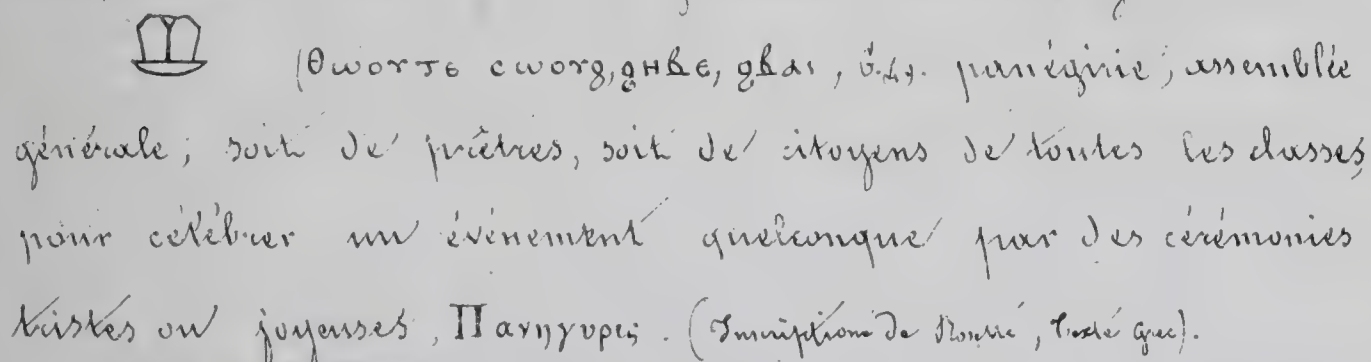 (ⲑⲱⲟⲩⲧⲉ ⲥⲱⲟⲩϩ, ϩⲏⲃⲉ, ϩⲃⲁⲓ, panégirie; assemblée
générale; soit de prêtres, soit de citoyens de toutes les classes,
pour célébrer un événement quelconque par des cérémonies
tristes ou joyeuses, Πανηγυρις. (Inscription de Rosette, texte grec).